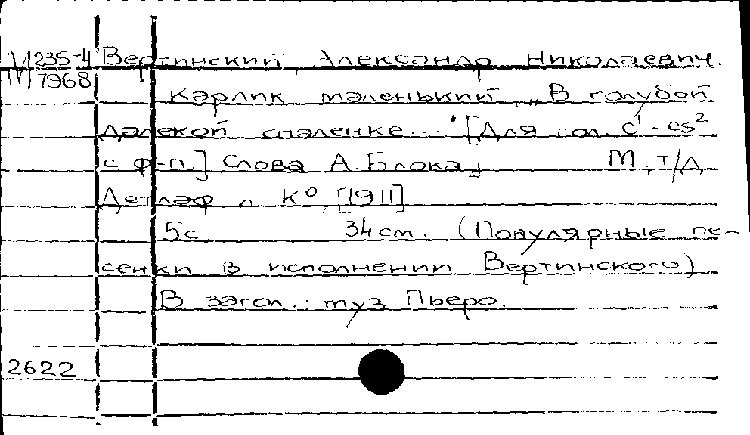 М 235-4 Вертинский, Александр Николаевич.
7968
Карлик маленький „В голубой
далекой спаленке..." [Для гол. c¹-es²
с ф-п.] Слова А. Блока.
М., т/д
Детлаф и К°, [1911]
5с 34 cm. (Популярные пе-
сенки в исполнении Вертинского)
В загл.: муз Пьеро.
2622